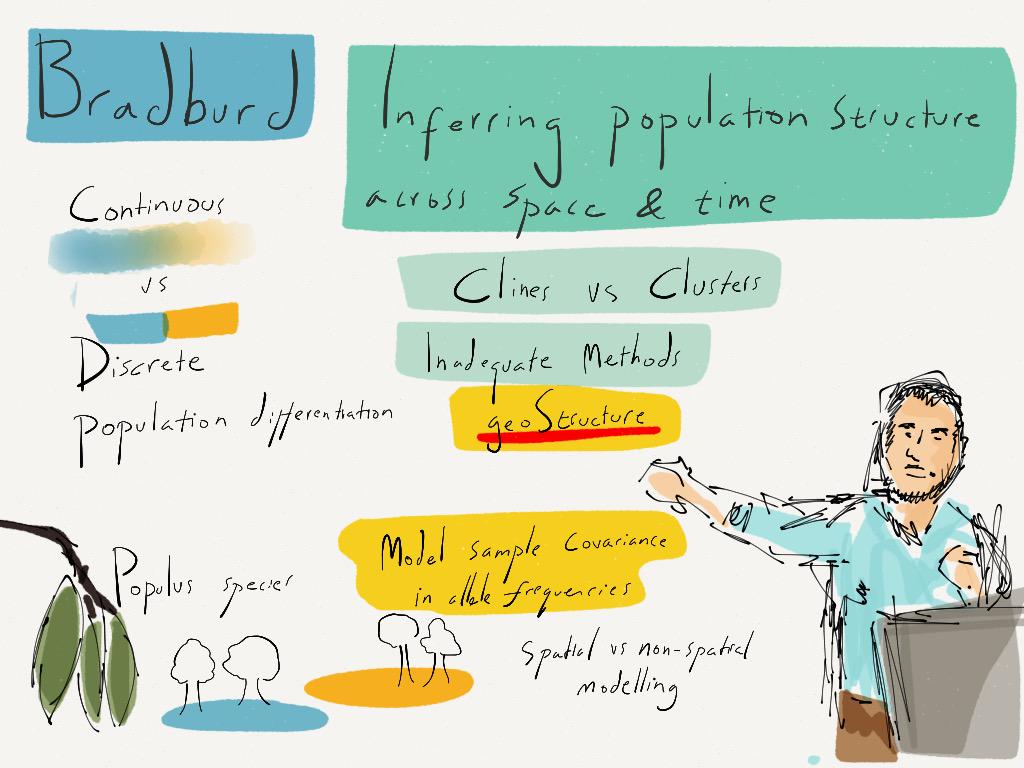 Bradburd
Inferring population structure
across space & time
Continuous
vs
Discrete
population differentiation
Clines vs Clusters
Inadequate Methods
geoStructure
Populus species
Model sample covariance
in allele frequencies
Spatial vs non-spatial
modelling